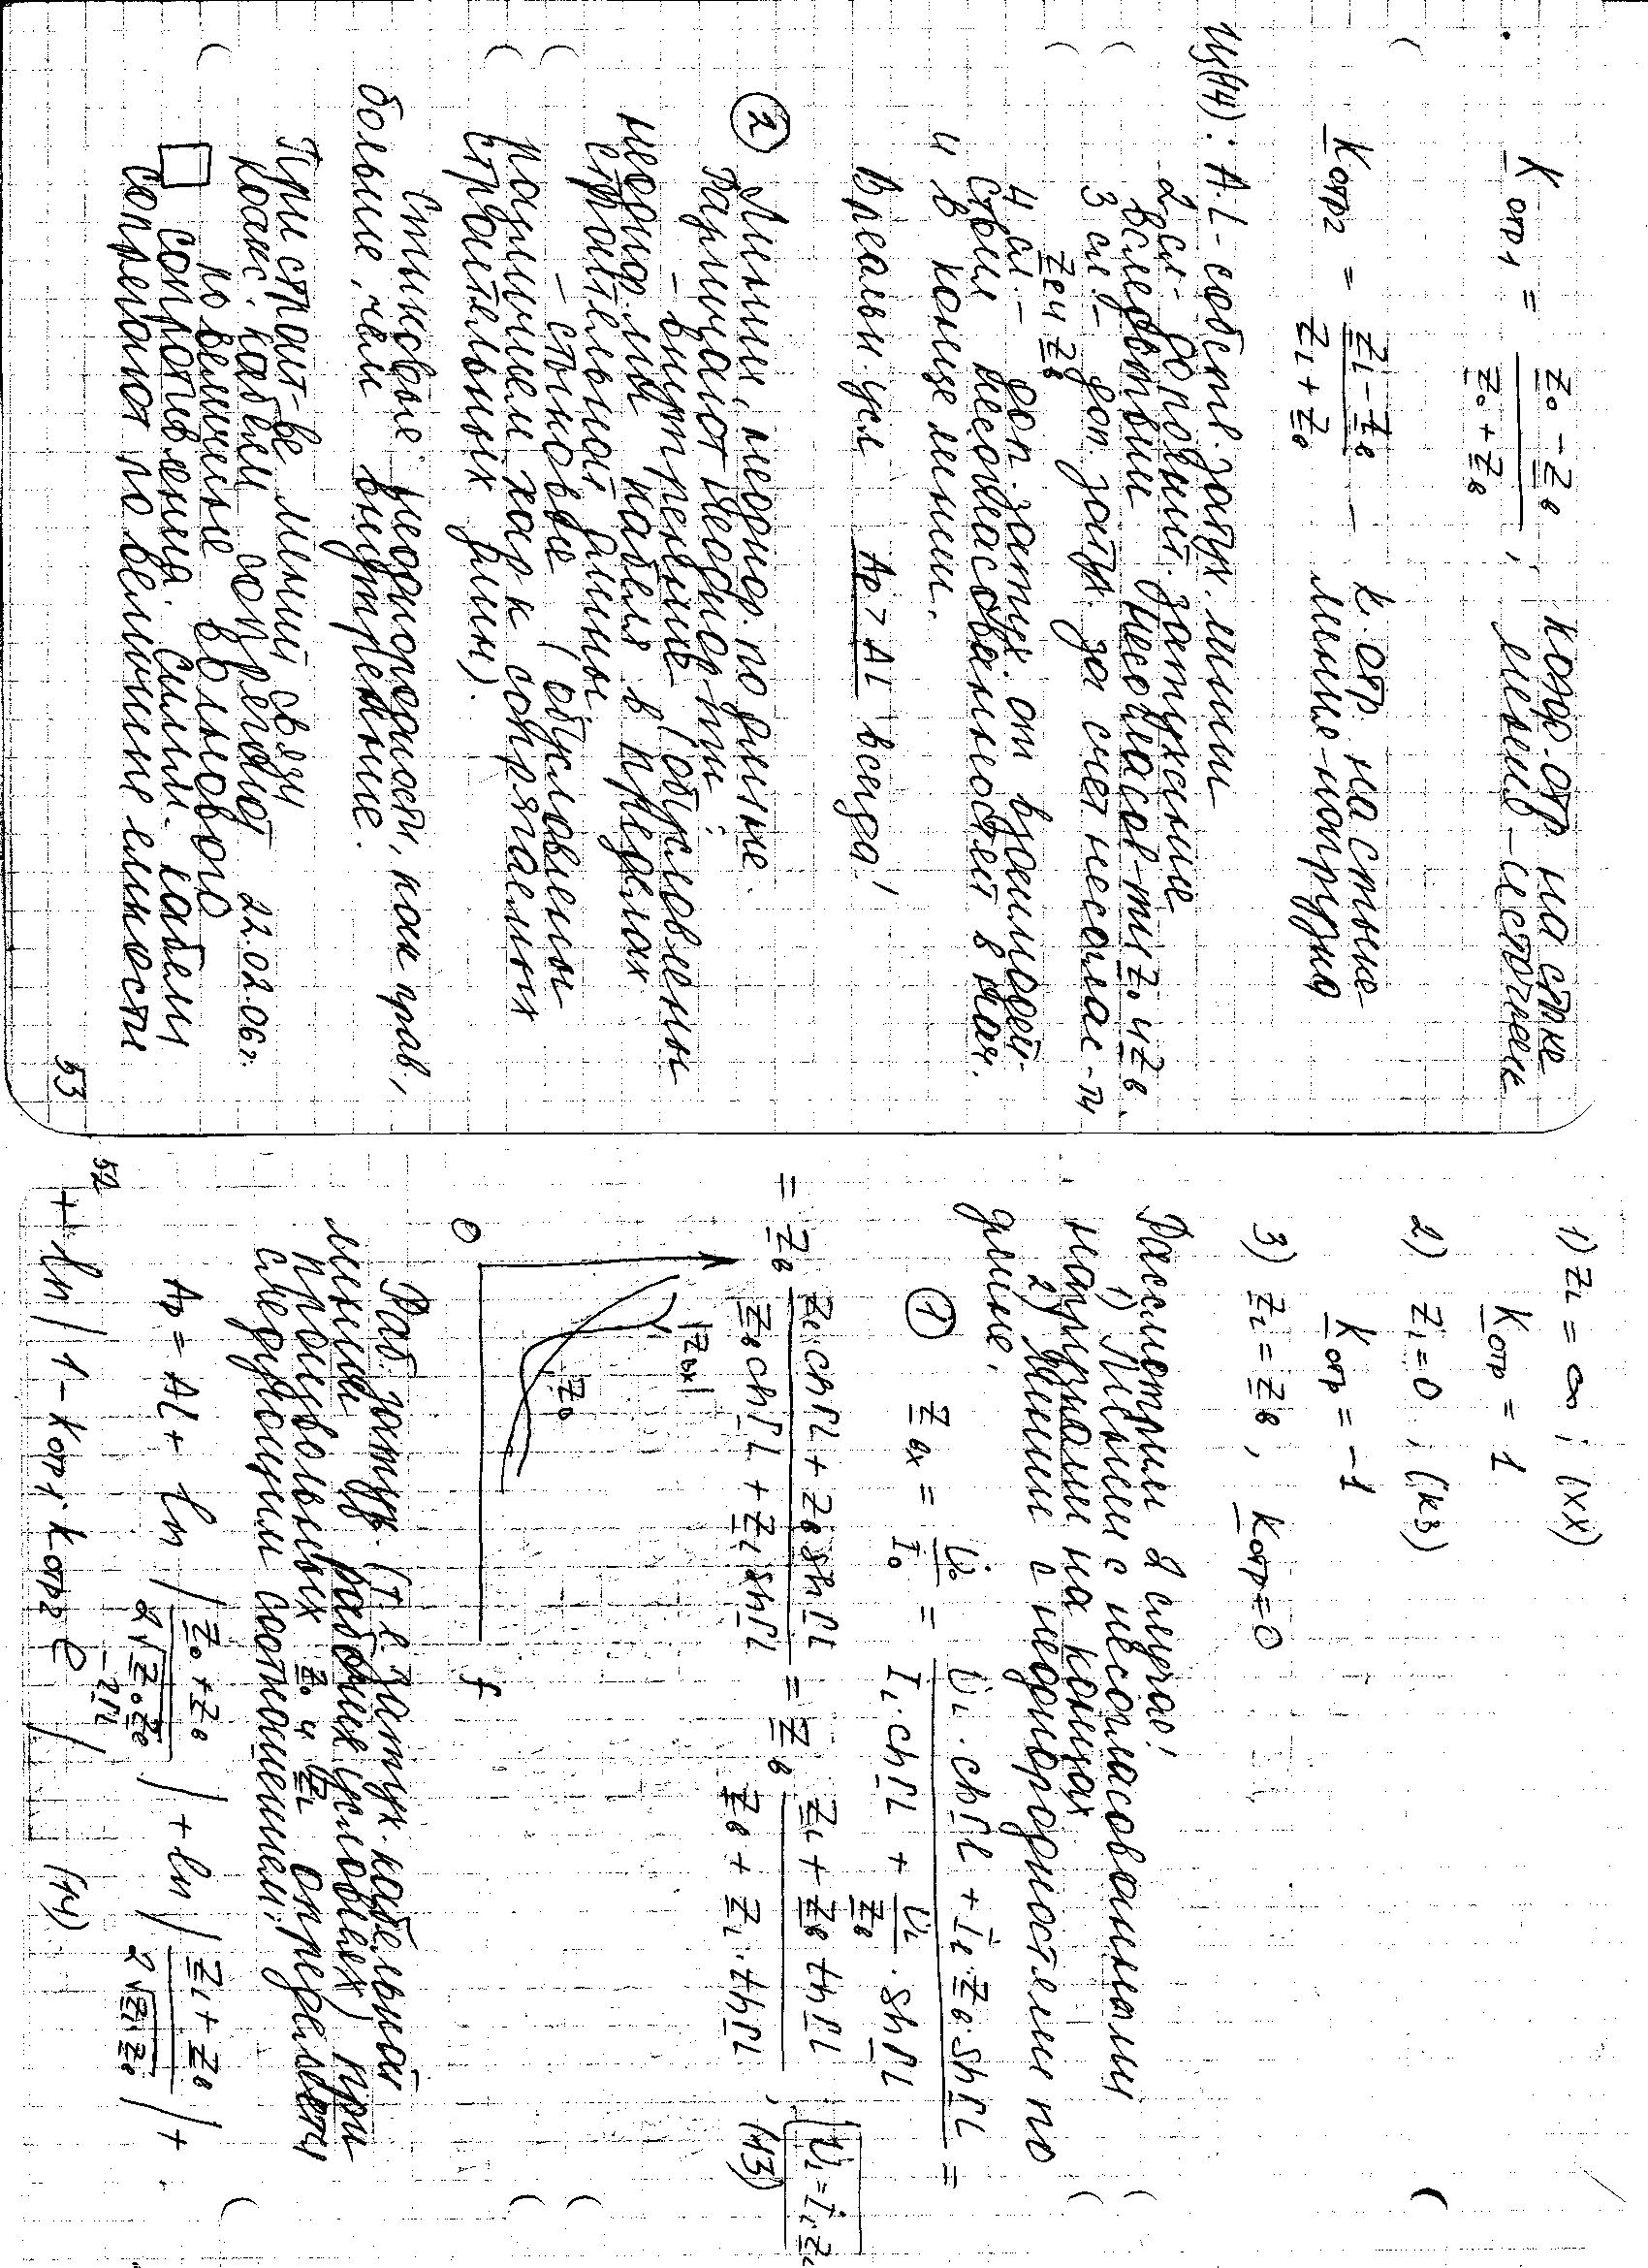 K отр 1 = (Z₀ − Zв) / (Z₀ + Zв) ; коэф. отр на стыке
линия-источник
K отр 2 = (Zl − Zв) / (Zl + Zв) — к. отр. на стыке
линия-нагрузка
Из (14): Al - собств. затух. линии
2 сл.- дополнит. затухание
вследствии несоглас-ти Z₀ и Zв.
3 сл.- доп. затух. за счет несоглас-ти
Zв и Zв
4 сл. - доп. затух. от взаимодей-
ствия несогласованностей в нач.
и в конце линии.
В реальн. усл Ap > Al всегда!
② Линии, неоднор. по длине.
Различают неоднор-ти:
- внутренние (обусловлены
неоднор-ми кабеля в пределах
строительной длины
- стыковые (обусловлены
различием хар-к сопрягаемых
строительных длин).
Стыковые неоднородности, как прав,
больше, чем внутренние.
При строит-ве линий связи
коакс. кабели сопрягают 22.02.06г.
по величине волнового
сопротивления. Симм. кабели
сопрягают по величине емкости
53
1) Zl = ∞ ; (XX)
K отр = 1
2) Zl = 0 ; (КЗ)
K отр = −1
3) Zl = Zв , K отр = 0
Рассмотрим 2 случая:
1) Линии с несогласованными
нагрузками на концах
2) Линии с неоднородностями по
длине.
① Z вх = U̇₀ / İ₀ = (U̇l · ch Гl + İl · Zв · sh Гl) / (İl · ch Гl + U̇l/Zв · sh Гl) =
= Zв (Zl ch Гl + Zв sh Гl) / (Zв ch Гl + Zl sh Гl) = Zв (Zl + Zв th Гl) / (Zв + Zl · th Гl) , (13) U̇l = İl · Zl
|Zвх|
Zв
0 f
Раб. затух. (т.е. затух. кабельной
линии в рабочих условиях) при
произвольных Z₀ и Zl определяется
следующим соотношением:
Ap = Al + ln | (Z₀ + Zв) / (2√(Z₀·Zв)) | + ln | (Zl + Zв) / (2√(Zl·Zв)) | +
+ ln | 1 − K отр 1 · K отр 2 e^(−2Гl) | (14)
52